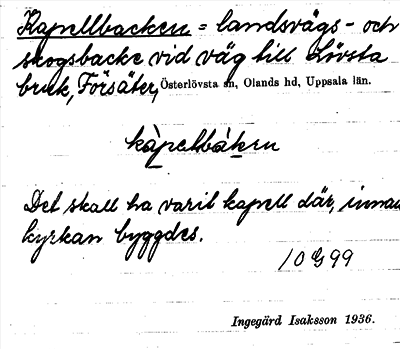 Kapellbacken = landsvägs- och
skogsbacke vid väg till Lövsta
bruk, Försäter, Österlövsta sn, Olands hd, Uppsala län.
kàpelbákₑn
Det skall ha varit kapell där, innan
kyrkan byggdes.
10 G 99
Ingegärd Isaksson 1936.